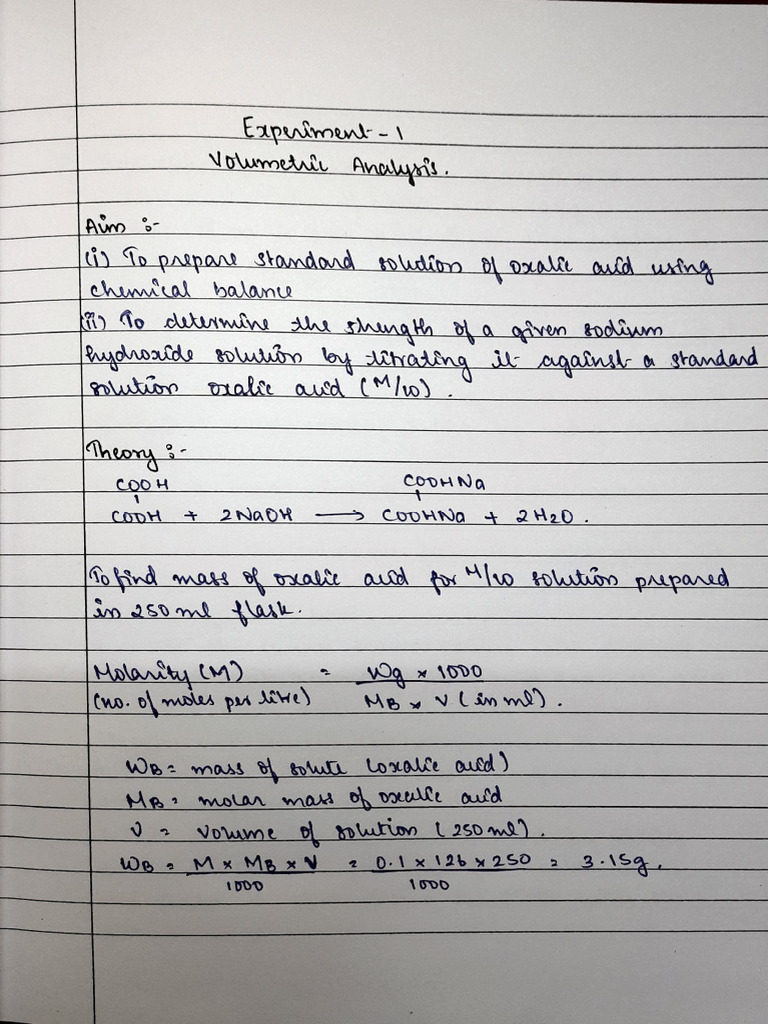 Experiment - 1
Volumetric Analysis.
Aim :-
(i) To prepare standard solution of oxalic acid using
chemical balance
(ii) To determine the strength of a given sodium
hydroxide solution by titrating it against a standard
solution oxalic acid (M/10).
Theory :-
COOH COOHNa
COOH + 2NaOH → COOHNa + 2H2O.
To find mass of oxalic acid for M/10 solution prepared
in 250 ml flask.
Molarity (M) = Wg × 1000
(no. of moles per litre) MB × V (in ml).
WB = mass of solute (oxalic acid)
MB = molar mass of oxalic acid
V = Volume of solution (250 ml).
WB = M × MB × V = 0.1 × 126 × 250 = 3.15g.
1000 1000